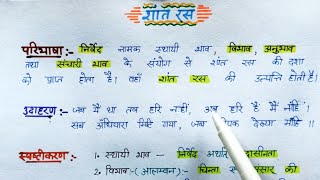 शांत रस
परिभाषा :- निर्वेद नामक स्थायी भाव, विभाव, अनुभाव
तथा संचारी भाव के संयोग से शांत रस की दशा
को प्राप्त होता है। वहाँ शांत रस की उत्पत्ति होती है।
उदाहरण:- जब मैं था तब हरि नहीं, अब हरि हैं मैं नाहिं।
सब अँधियारा मिट गया, जब देख्या माँहि ॥
स्पष्टीकरण:- 1. स्थायी भाव - निर्वेद
2. विभाव - (आलम्बन) चिन्ता की